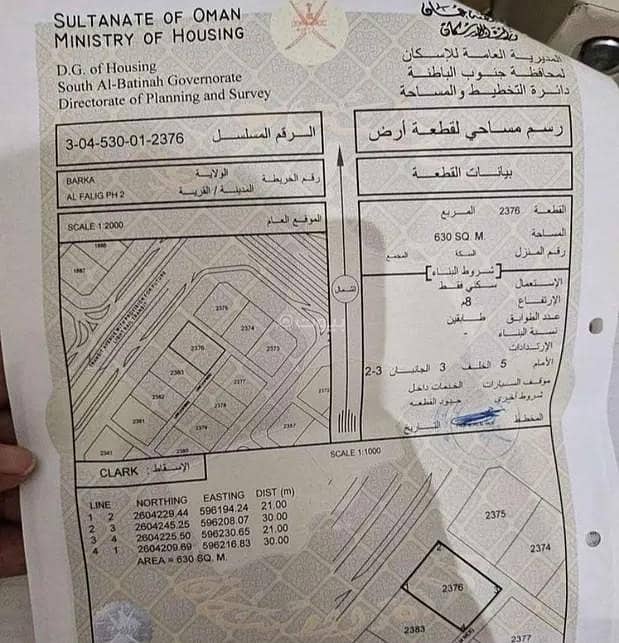 SULTANATE OF OMAN
MINISTRY OF HOUSING
D.G. of Housing
South Al-Batinah Governorate
Directorate of Planning and Survey
المديرية العامة للاسكان
لمحافظة جنوب الباطنة
دائرة التخطيط والمساحة
3-04-530-01-2376 الرقم المسلسل
رسم مساحي لقطعة أرض
BARKA الولاية
رقم الخريطة
AL FALIG PH 2 المدينة / القرية
بيانات القطعة
SCALE 1:2000 الموقع العام
القطعة 2376 المربع
المساحة 630 SQ. M.
رقم المنزل السكة المجمع
شروط البناء
الإستعمال سكني فقط
الإرتفاع 8م
عدد الطوابق طابقين
نسبة البناء -
الإرتدادات
الأمام 5 الخلف 3 الجانبان 3-2
موقف السيارات الخدمات داخل
شروط أخرى حدود القطعه
المخطط التاريخ
الشمال
1886
1887
2375
2374
2376
2373
2383
2377
2382
2378
2372
2381
2379
2367
2341
SCALE 1:1000
CLARK الإسقاط:
LINE NORTHING EASTING DIST (m)
1 2 2604229.44 596194.24 21.00
2 3 2604245.25 596208.07 30.00
3 4 2604225.50 596230.65 21.00
4 1 2604209.69 596216.83 30.00
AREA = 630 SQ. M.
2375
2374
2
1 2376 3
2383
2377